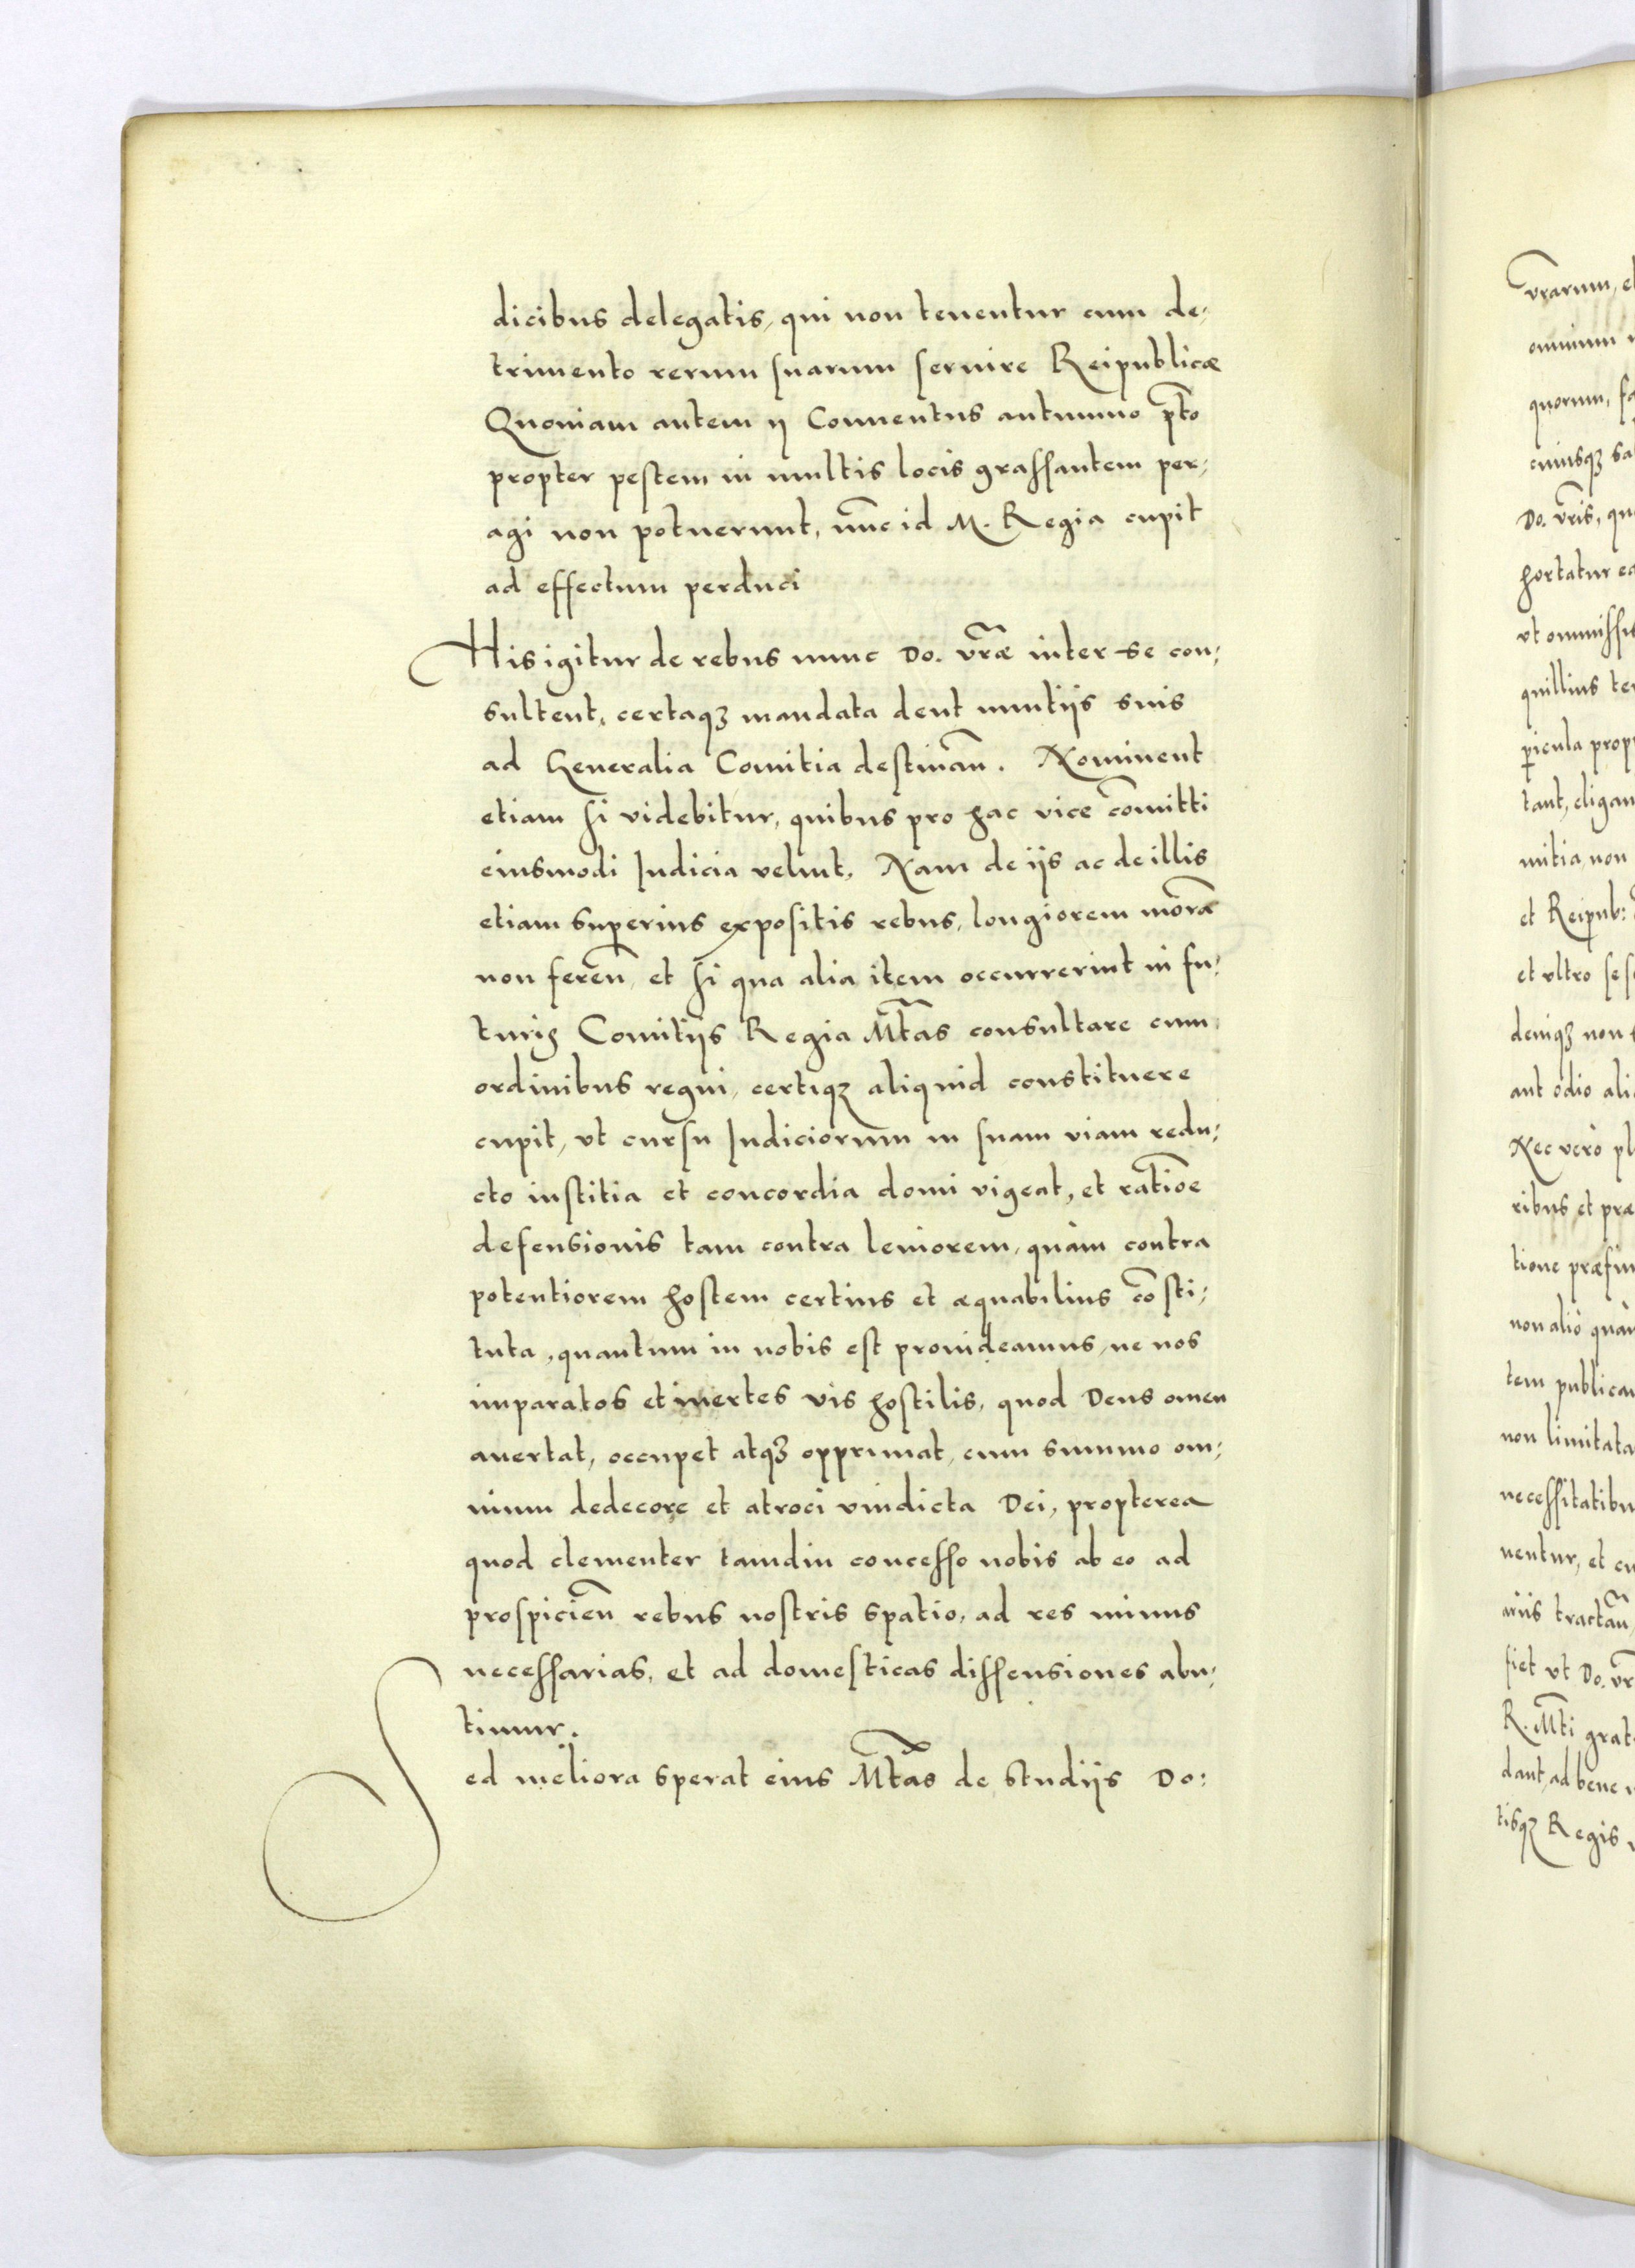 dicibus delegatis, qui non tenentur cum de,
trimento rerum suarum seruire Reipublicæ
Quoniam autem ij Conuentus autumno p̃to
propter pestem in multis locis grassantem per,
agi non potuerunt, nũc id M. Regia cupit
ad effectum perduci
His igitur de rebus nunc Do. vr̃æ inter se con,
sultent, certaqꝫ mandata dent nuntijs suis
ad Generalia Comitia destinañ. Nominent
etiam si videbitur, quibus pro hac vice com̃itti
eiusmodi Iudicia velint, Nam de ijs ac de illis
etiam superius expositis rebus, longiorem morã
non fereñ, et si qua alia item occurrerint in fu,
turis Comitijs Regia Mt̃as consultare cum
ordinibus regni, certiqꝫ aliquid constituere
cupit, vt cursu Iudiciorum in suam viam redu,
cto iustitia et concordia domi vigeat, et ratiõe
defensionis tam contra leuiorem, quàm contra
potentiorem hostem certius et æquabilius cõsti,
tuta, quantum in nobis est prouideamus, ne nos
imparatos et inertes vis hostilis, quod Deus omen
auertat, occupet atqꝫ opprimat, cum summo om,
nium dedecore et atroci vindicta Dei, propterea
quod clementer tamdiu concesso nobis ab eo ad
prospicieñ rebus nostris spatio, ad res minus
necessarias, et ad domesticas dissensiones abu,
timur.
Sed meliora sperat eius Mt̃as de studijs Do:
vrarum, e
omnium
quorum, fa
cuiusqꝫ sa
Do. vr̃is, qu
hortatur ea
vt ommissis
quillius te
p̱icula prop
tant, eligan
mitia, non
et Reipub:
et vltro se s
deniqꝫ non
aut odio ali
Nec verò pl
ribus et præ
tione præfin
non aliò quàm
tem publicam
non limitata
necessitatibu
nentur, et cu
arijs tractañ
fiet vt Do. vr̃
R. Mt̃i grat
dant, ad bene
tisqꝫ Regis